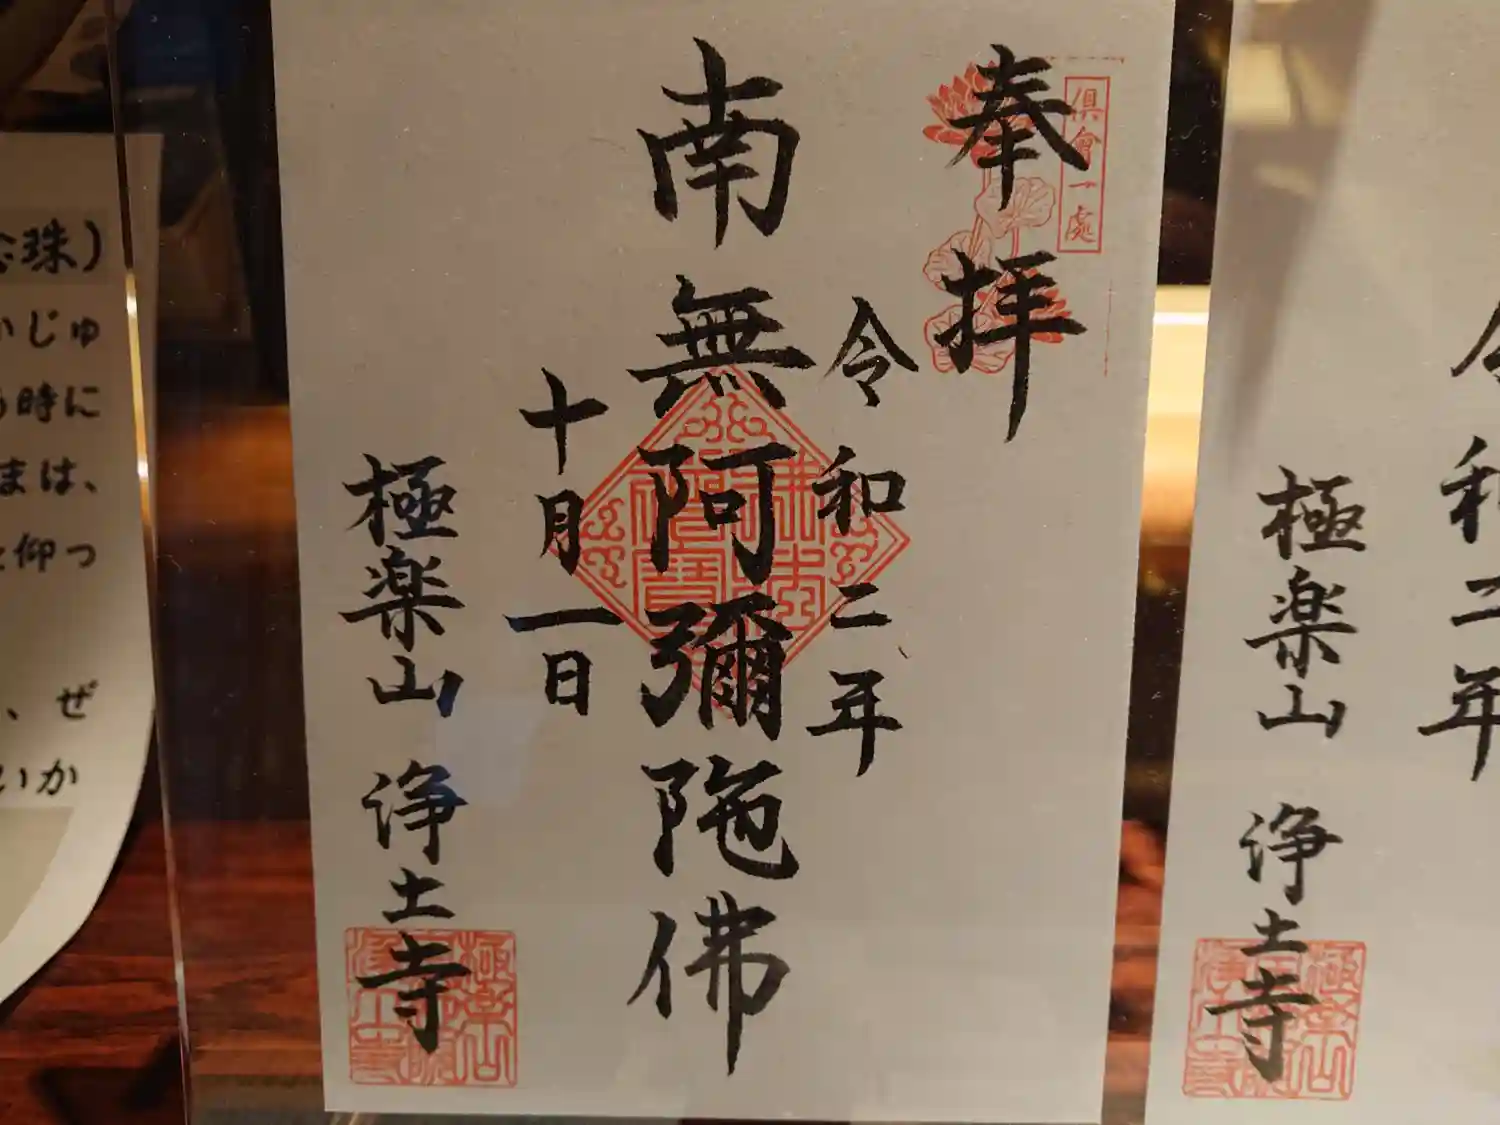 奉拝
俱會一處
令和二年
南無阿彌陀佛
十月一日
極楽山 浄土寺
令和二年
極楽山 浄土寺
珠）
かじゅ
時に
まは、
仰っ
、ぜ
いか